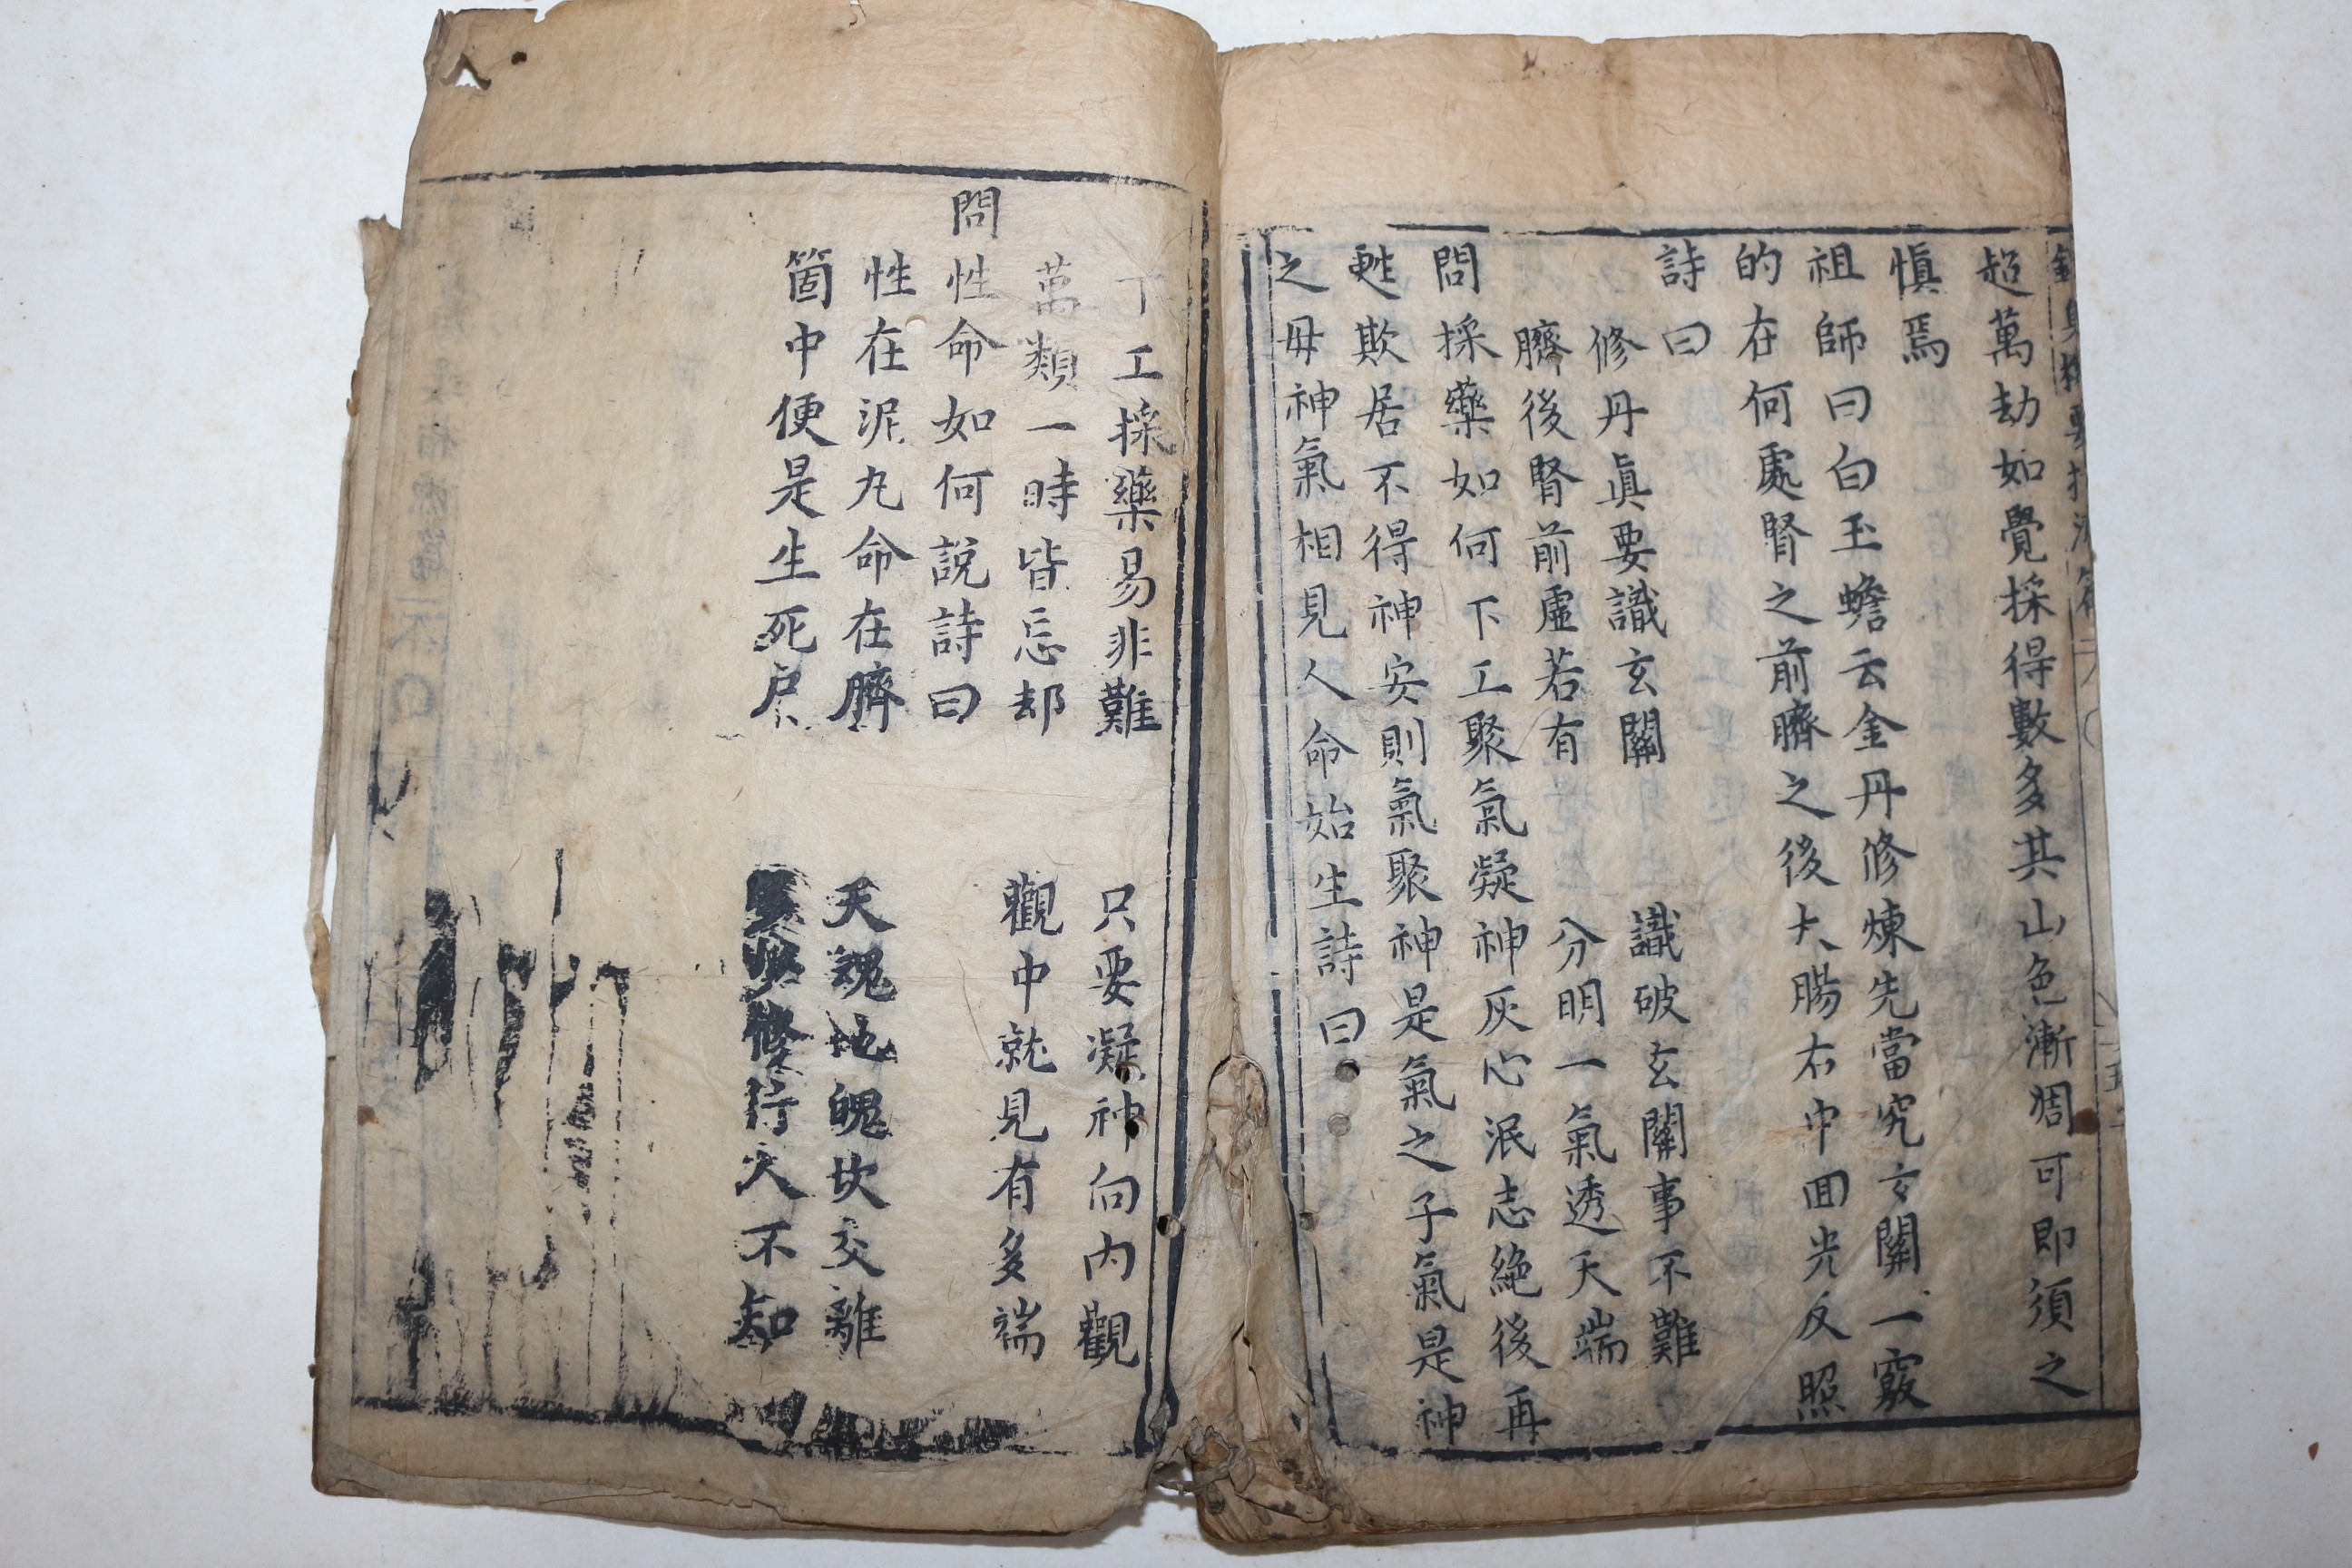 超萬劫如覺採得數多其山色漸凋可即須之
慎焉
祖師曰白玉蟾云金丹修煉先當究玄關一竅
的在何處腎之前臍之後大腸右中囬光反照
詩曰
修丹眞要識玄關　識破玄關事不難
臍後腎前虛若有　分明一氣透天端
問採藥如何下工聚氣凝神灰心泯志絶後再
甦欺居不得神安則氣聚神是氣之子氣是神
之母神氣相見人命始生詩曰
下工採藥易非難　只要凝神向內觀
萬類一時皆忘却　觀中就見有多端
問性命如何說詩曰
性在泥丸命在臍　天魂地魄坎交離
箇中便是生死户　修行人不知